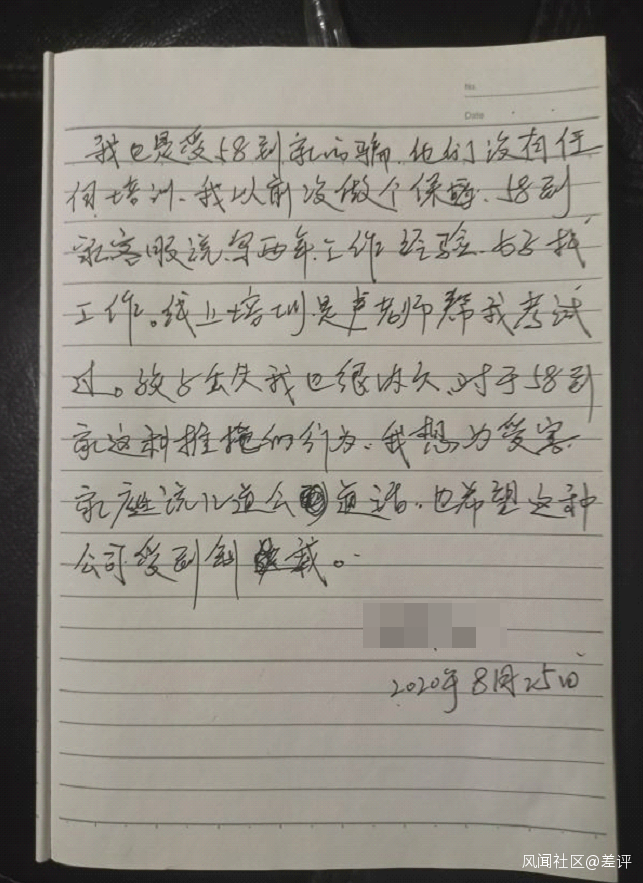 No.
Date
我也是受58到家的骗、他们没有任
何培训、我以前没做个保 、58到
家客服说、写两年工作经验、 好找
工作。线上培训是 老师帮我考试
过。 我也很 、对于58到
家这种推 的行为、我想为受害
家 说 道公道话、也希望这种
公司受到制裁。
2020年8月25日
风闻社区@差评